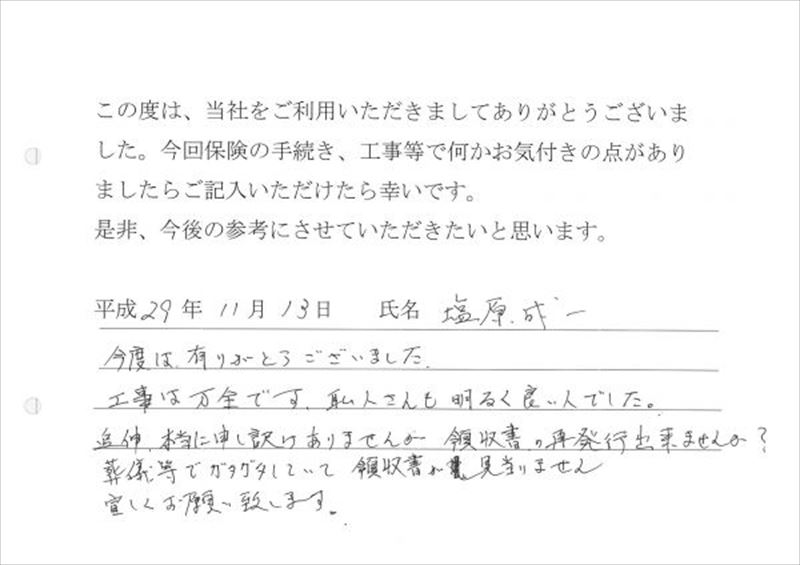 この度は、当社をご利用いただきましてありがとうございま
した。今回保険の手続き、工事等で何かお気付きの点があり
ましたらご記入いただけたら幸いです。
是非、今後の参考にさせていただきたいと思います。
平成29年 11月 13日 氏名 塩原 成一
今度は、有りがとうございました。
工事は万全です、職人さんも明るく良い人でした。
追伸、本当に申し訳けありませんが 領収書の再発行出来ませんか？
葬儀等でガタガタしていて 領収書が見当りません
宜しくお願い致します。